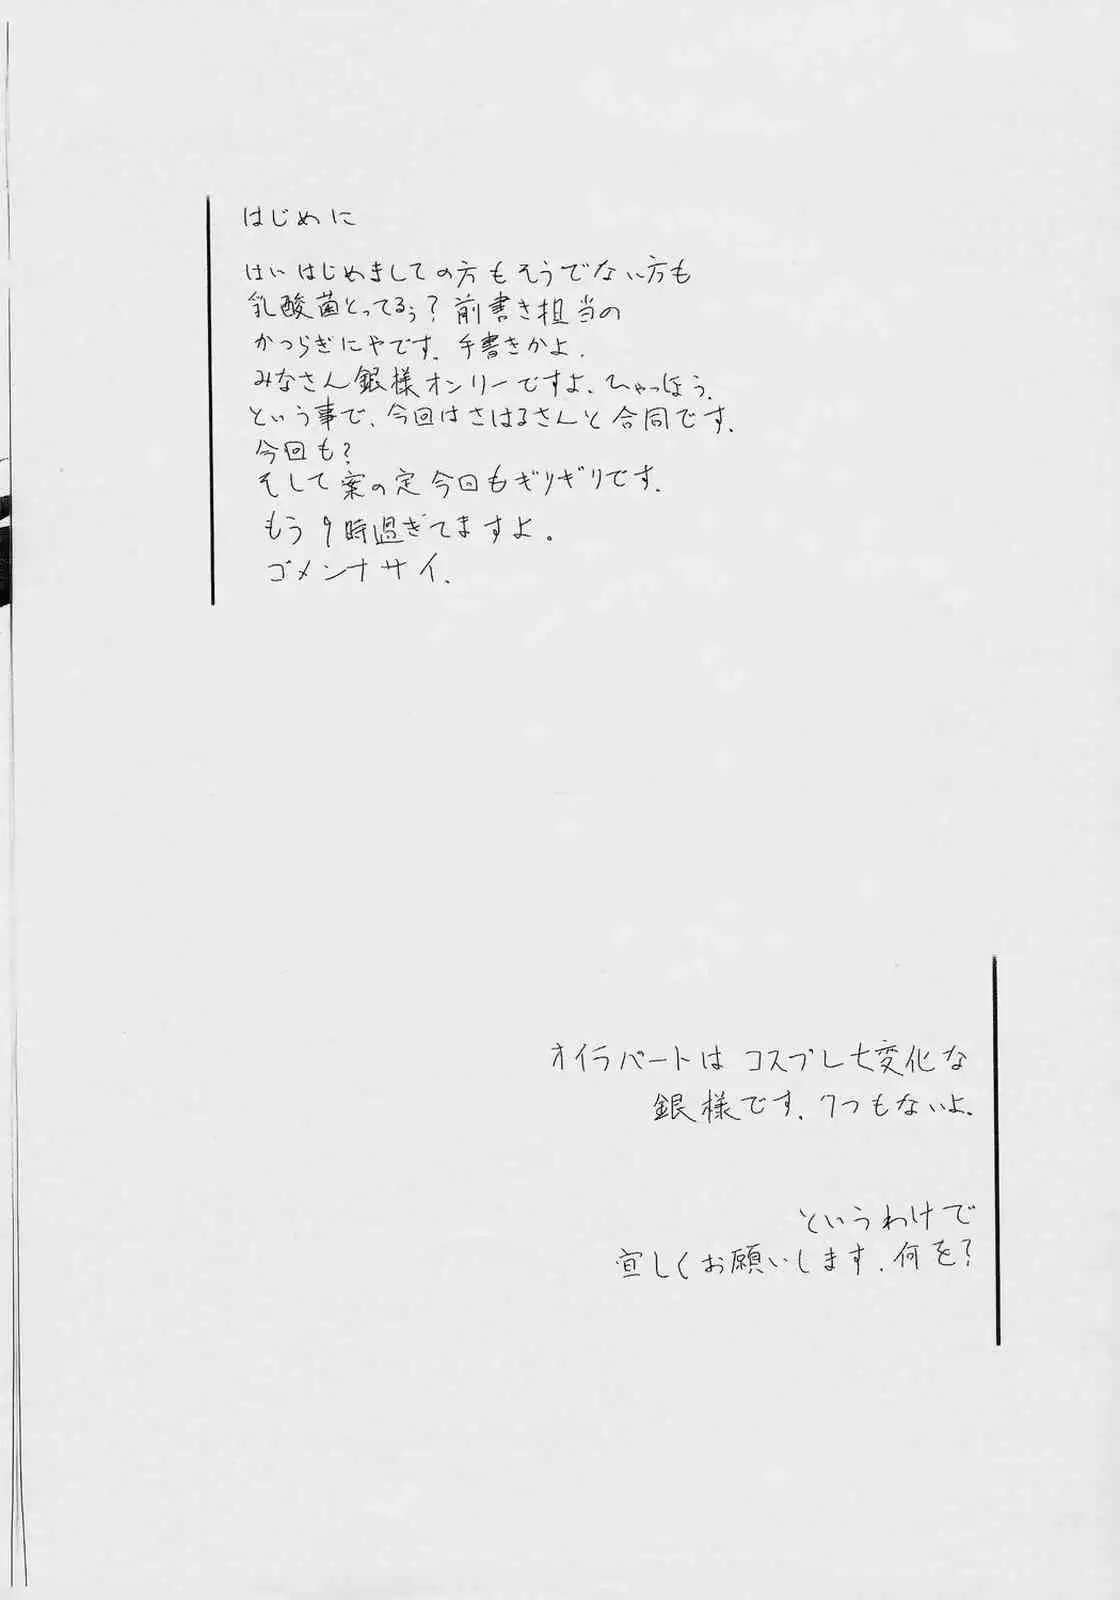 はじめに
はい はじめましての方もそうでない方も
乳酸菌とってるぅ？前書き担当の
かつらぎにゃです。手書きかよ．
みなさん銀様オンリーですよ、ひゃっほう．
という事で、今回はさはるさんと合同です．
今回も？
そして案の定今回もギリギリです．
もう9時過ぎてますよ。
ゴメンナサイ．
オイラパートは コスプレ七変化な
銀様です．7つもないよ．
というわけで
宜しくお願いします．何を？